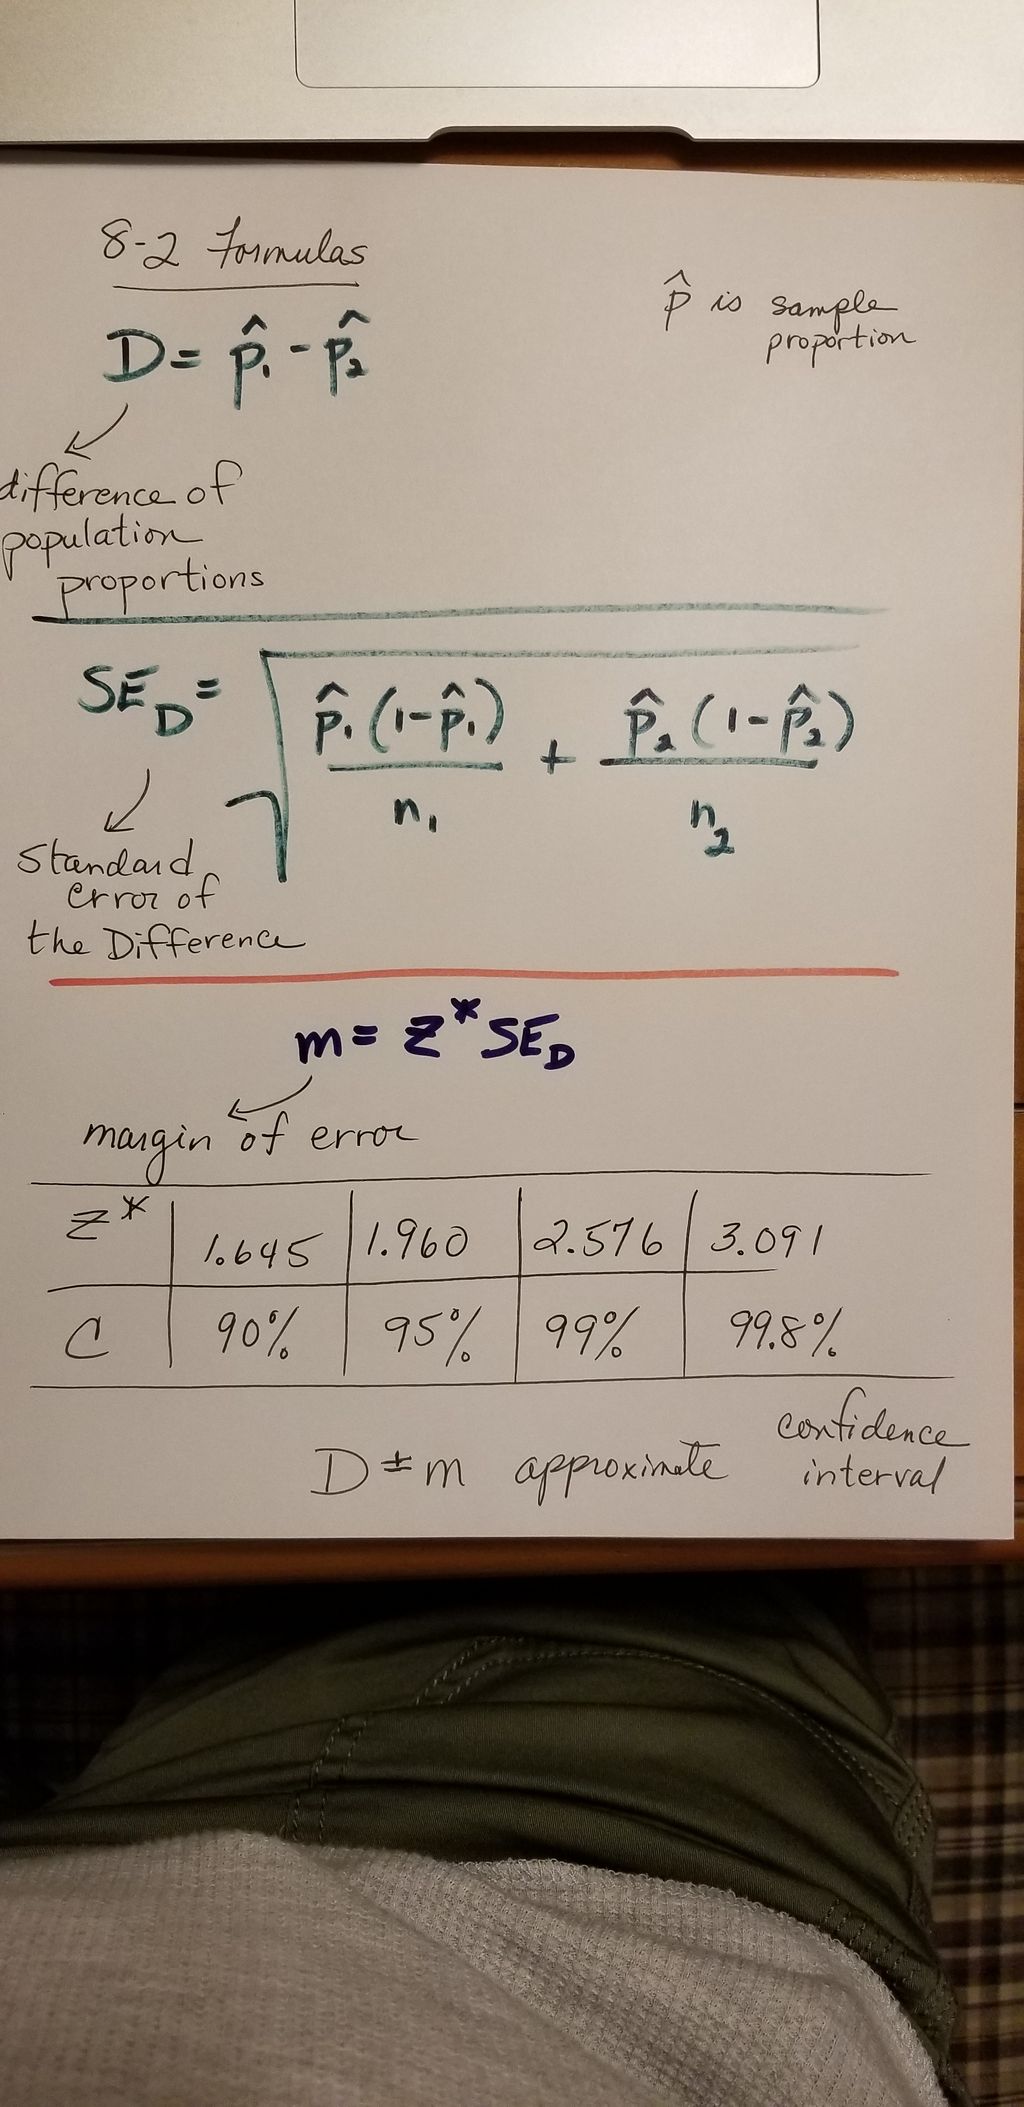 8-2 Formulas
p̂ is sample
proportion
D = p̂₁ - p̂₂
difference of
population
proportions
SE_D = √( p̂₁(1-p̂₁) / n₁ + p̂₂(1-p̂₂) / n₂ )
Standard
error of
the Difference
m = z* SE_D
margin of error
z* | 1.645 | 1.960 | 2.576 | 3.091
C | 90% | 95% | 99% | 99.8%
D ± m approximate confidence
interval